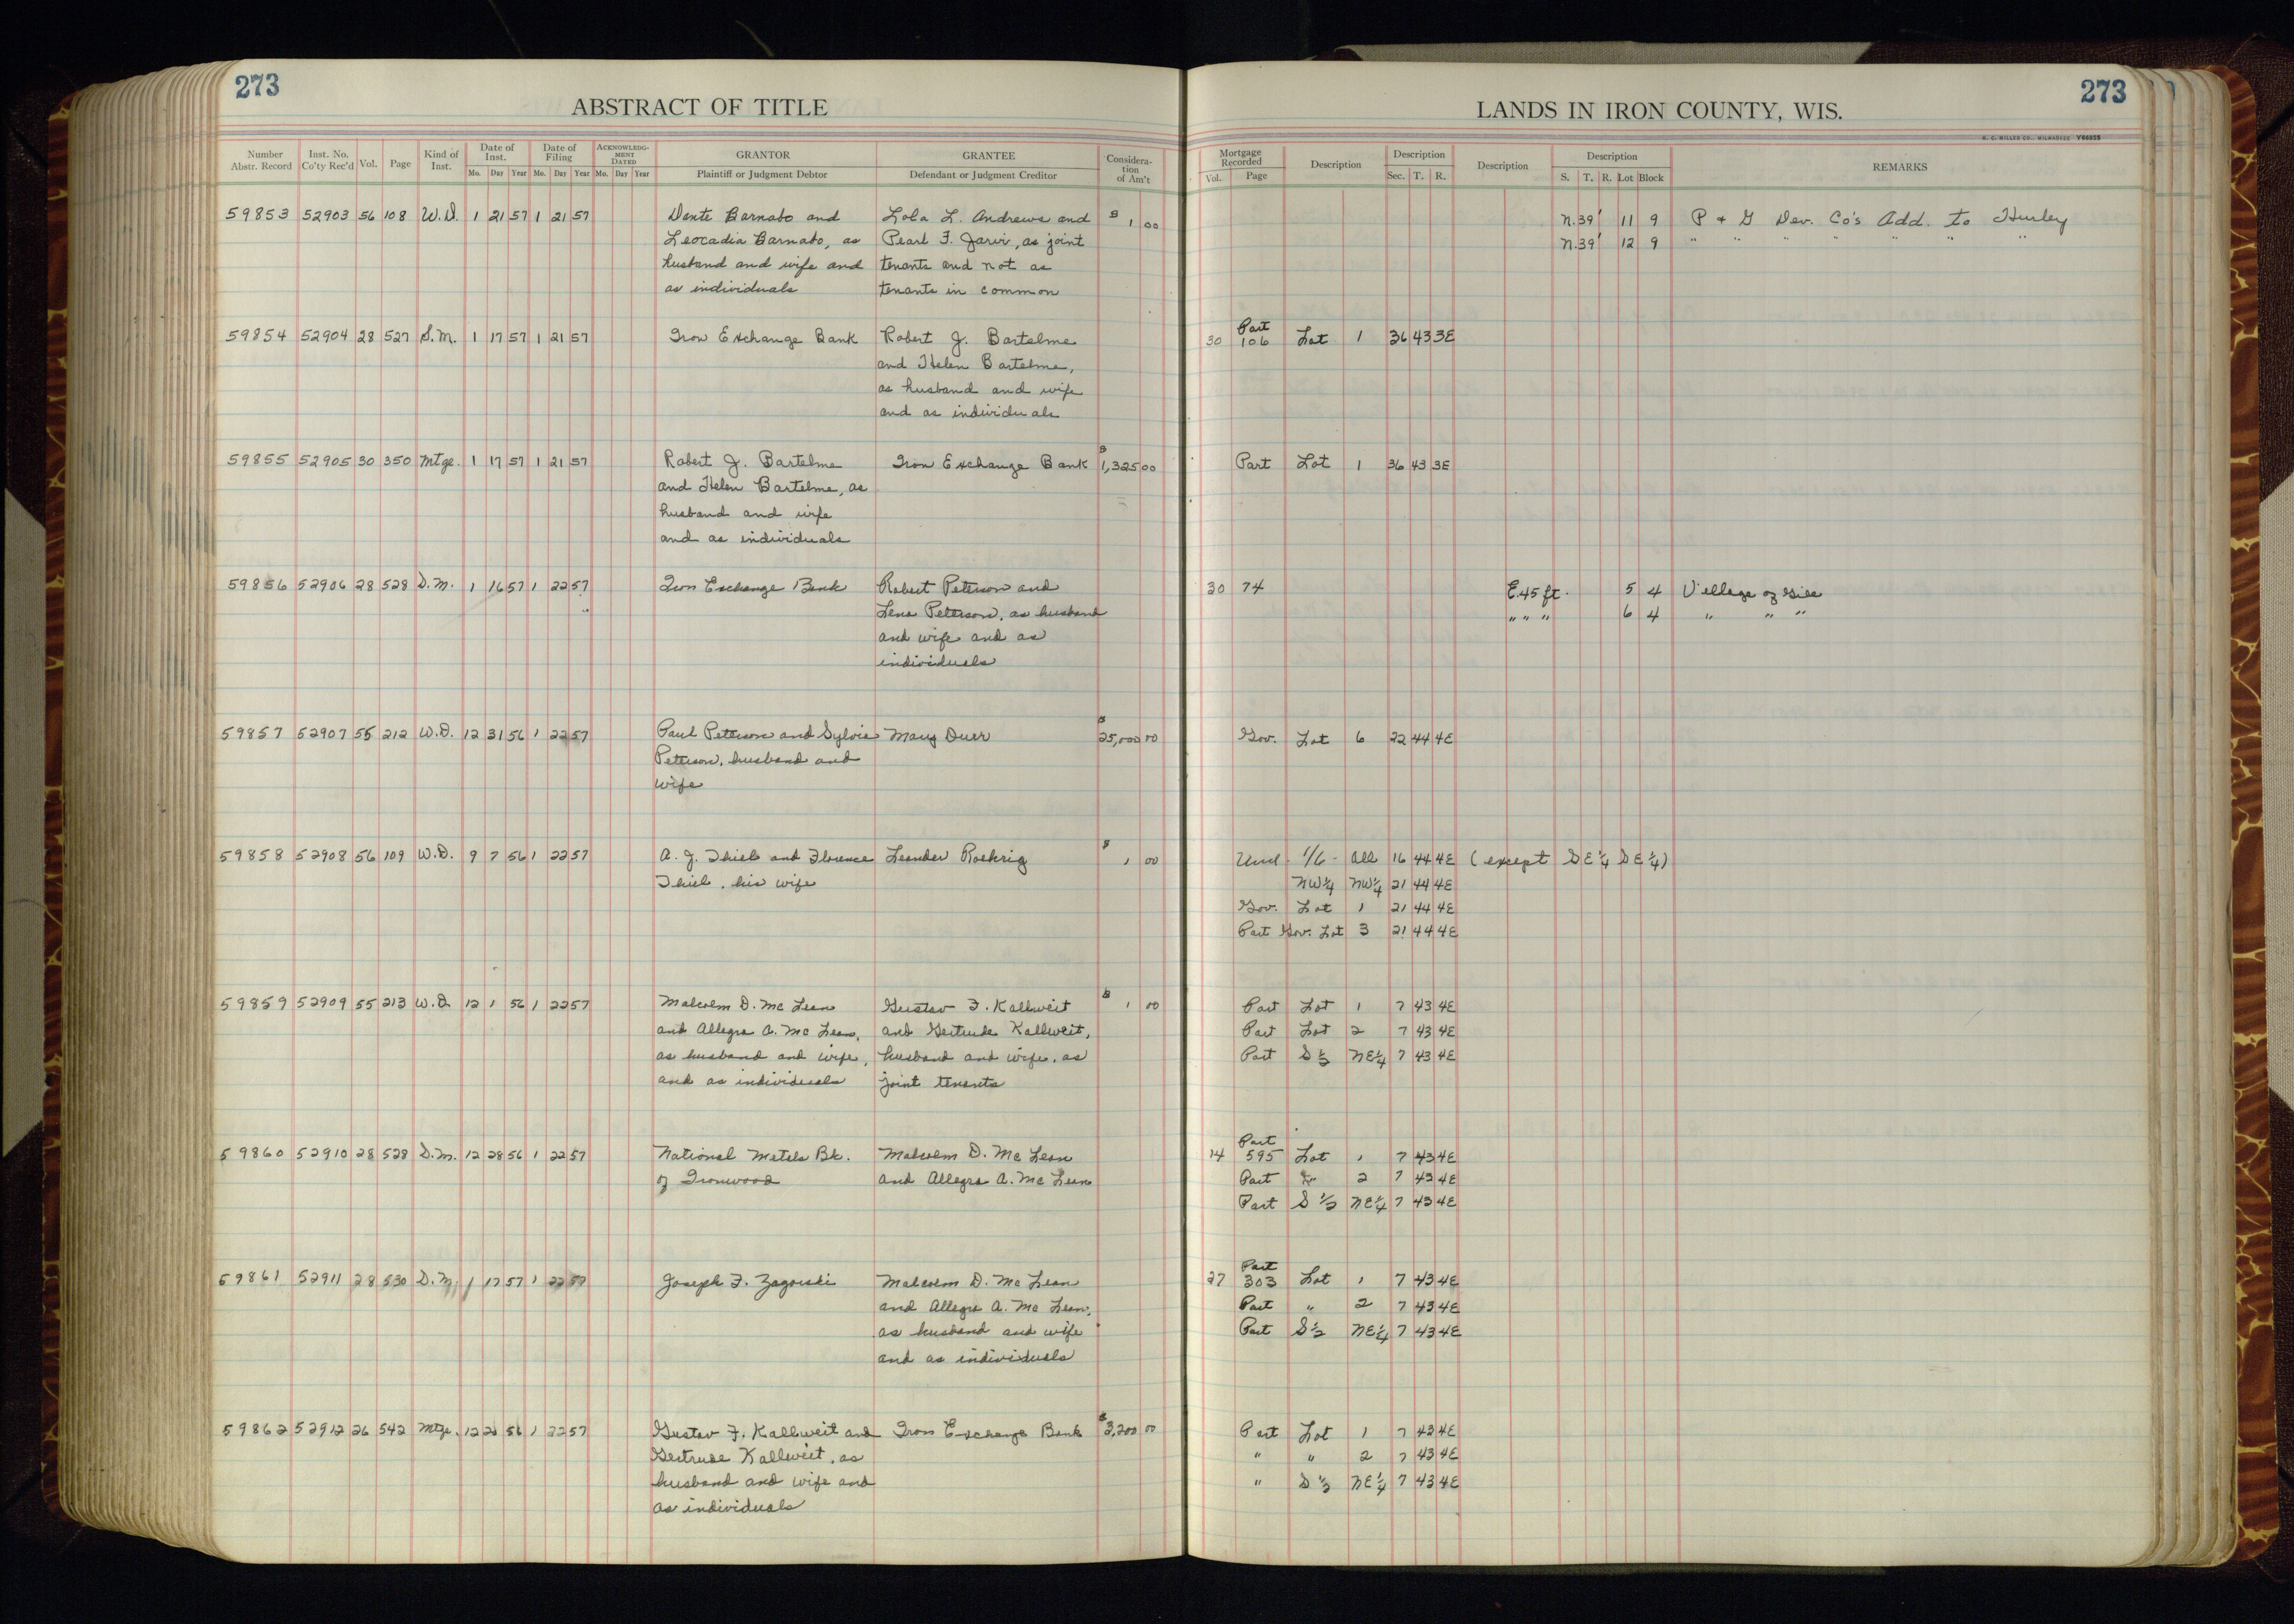 273
ABSTRACT OF TITLE
LANDS IN IRON COUNTY, WIS.
273
H. C. MILLER CO., MILWAUKEE Y66855
Number Abstr. Record | Inst. No. Co'ty Rec'd | Vol. | Page | Kind of Inst. | Date of Inst. Mo. Day Year | Date of Filing Mo. Day Year | ACKNOWLEDGMENT DATED Mo. Day Year | GRANTOR Plaintiff or Judgment Debtor | GRANTEE Defendant or Judgment Creditor | Consideration of Am't | Mortgage Recorded Vol. Page | Description | Description Sec. T. R. | Description | Description S. T. R. Lot Block | REMARKS
59853 52903 56 108 W.D. 1 21 57 1 21 57 Dante Barnabo and Lola L. Andrews and $ 1 00 N.39' 11 9 P & G Dev. Co's Add. to Hurley
Leocadia Barnabo, as Pearl F. Jarvi, as joint N.39' 12 9 " " " " " "
husband and wife and tenants and not as
as individuals tenants in common
59854 52904 28 527 S.M. 1 17 57 1 21 57 Iron Exchange Bank Robert J. Bartelme 30 Part 106 Lot 1 36 43 3E
and Helen Bartelme,
as husband and wife
and as individuals
59855 52905 30 350 Mtge. 1 17 57 1 21 57 Robert J. Bartelme Iron Exchange Bank $ 1,325 00 Part Lot 1 36 43 3E
and Helen Bartelme, as
husband and wife
and as individuals
59856 52906 28 528 D.M. 1 16 57 1 22 57 Iron Exchange Bank Robert Peterson and 30 74 E.45 ft. 5 4 Village of Gile
Lena Peterson, as husband " " " 6 4 " " "
and wife and as
individuals
59857 52907 55 212 W.D. 12 31 56 1 22 57 Paul Peterson and Sylvia Mary Duer $ 25,000 00 Gov. Lot 6 22 44 4E
Peterson, husband and
wife
59858 52908 56 109 W.D. 9 7 56 1 22 57 A. J. Thiel and Florence Leander Roehrig $ 1 00 Und. 1/6 - All 16 44 4E (except SE¼ SE¼)
Thiel, his wife NW¼ NW¼ 21 44 4E
Gov. Lot 1 21 44 4E
Part Gov. Lot 3 21 44 4E
59859 52909 55 213 W.D. 12 1 56 1 22 57 Malcolm D. Mc Lean Gustav F. Kallweit $ 1 00 Part Lot 1 7 43 4E
and Allegra A. Mc Lean, and Gertrude Kallweit, Part Lot 2 7 43 4E
as husband and wife, husband and wife, as Part S½ NE¼ 7 43 4E
and as individuals joint tenants
59860 52910 28 528 D.M. 12 28 56 1 22 57 National Metals Bk. Malcolm D. Mc Lean 14 Part 595 Lot 1 7 43 4E
of Ironwood and Allegra A. Mc Lean Part 2 7 43 4E
Part S ½ NE¼ 7 43 4E
59861 52911 28 530 D.M. 1 17 57 1 22 57 Joseph F. Zagorski Malcolm D. Mc Lean 27 Part 303 Lot 1 7 43 4E
and Allegra A. Mc Lean, Part " 2 7 43 4E
as husband and wife Part S½ NE¼ 7 43 4E
and as individuals
59862 52912 26 542 Mtge. 12 56 1 22 57 Gustav F. Kallweit and Iron Exchange Bank $ 3,200 00 Part Lot 1 7 43 4E
Gertrude Kallweit, as " " 2 7 43 4E
husband and wife and " S ½ NE¼ 7 43 4E
as individuals